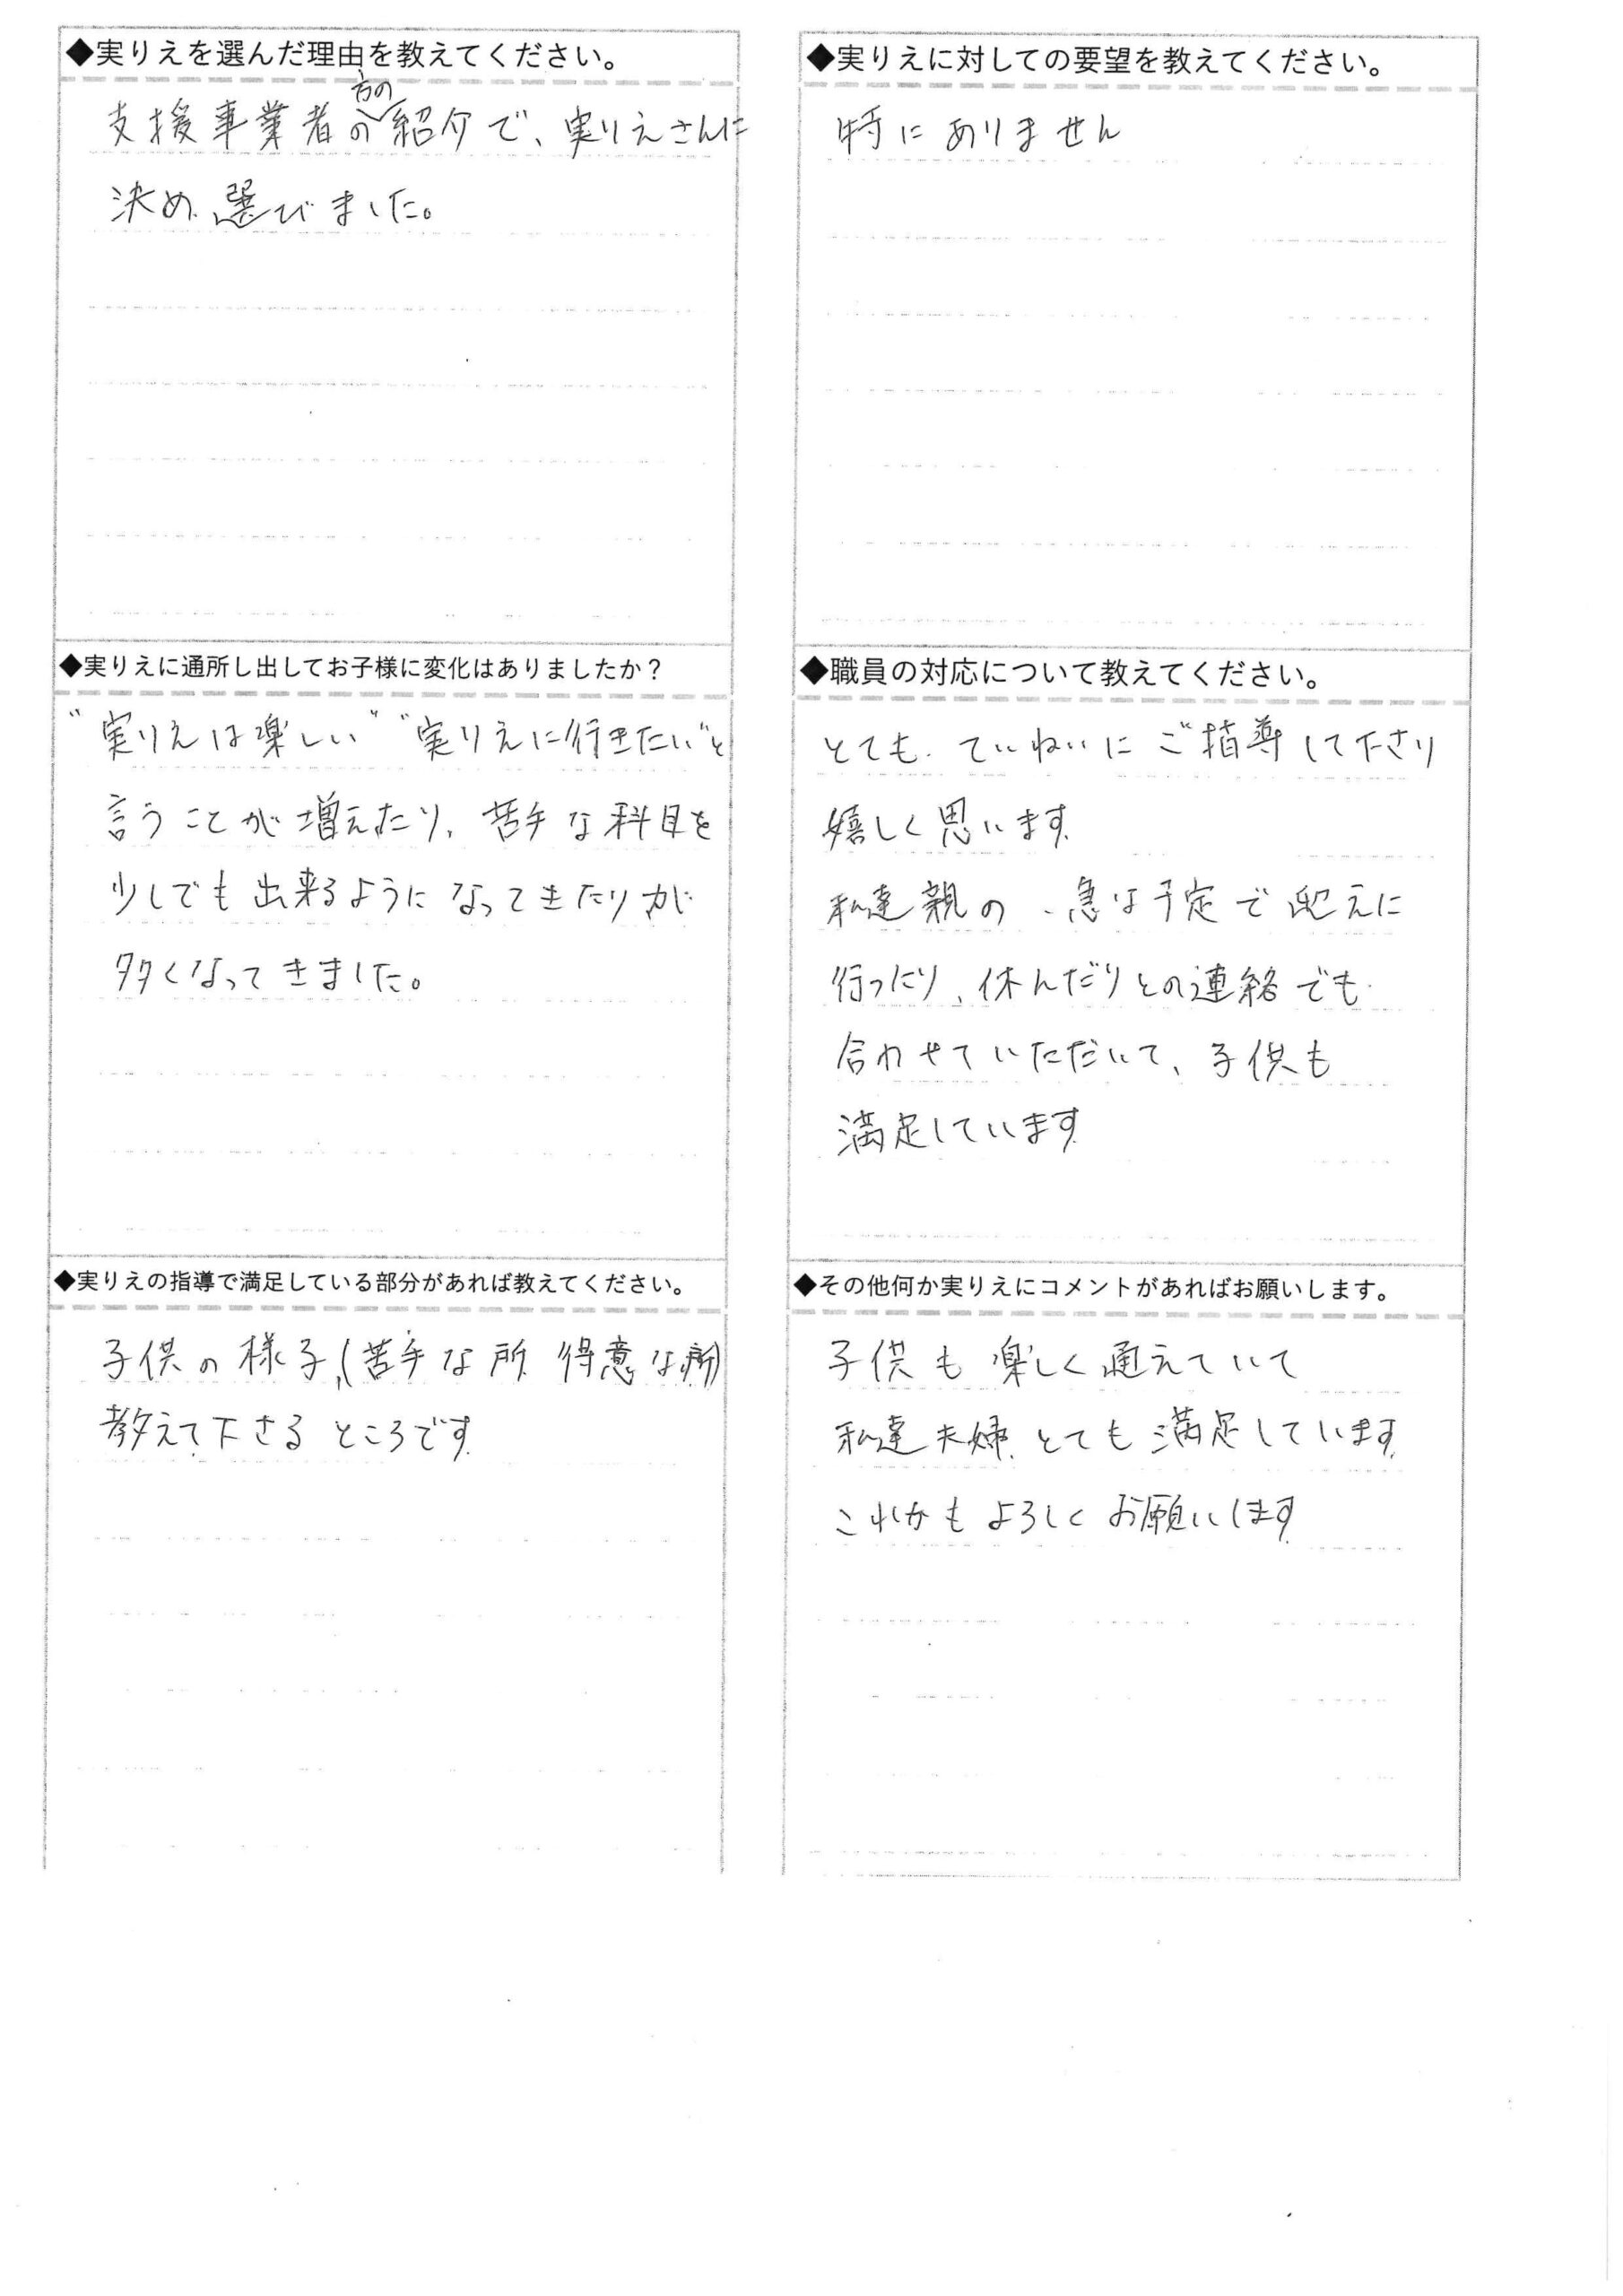 ◆実りえを選んだ理由を教えてください。
方の
支援事業者の紹介で、実りえさんに
決め、選びました。
◆実りえに通所し出してお子様に変化はありましたか？
"実りえは楽しい" "実りえに行きたい"と
言うことが増えたり、苦手な科目を
少しでも出来るようになってきたりが
多くなってきました。
◆実りえの指導で満足している部分があれば教えてください。
子供の様子、(苦手な所 得意な所)
教えて下さるところです
◆実りえに対しての要望を教えてください。
特にありません
◆職員の対応について教えてください。
とても、ていねいにご指導して下さり
嬉しく思います。
私達親の、急な予定で迎えに
行ったり、休んだりとの連絡でも
合わせていただいて、子供も
満足しています
◆その他何か実りえにコメントがあればお願いします。
子供も楽しく通えていて
私達夫婦、とても満足しています。
これかもよろしくお願いします